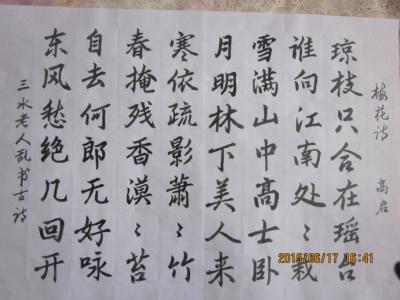 梅花诗 高启
琼枝只合在瑶台
谁向江南处〻栽
雪满山中高士卧
月明林下美人来
寒依疏影萧〻竹
春掩残香漠〻苔
自去何郎无好咏
东风愁绝几回开
三水老人乱书古诗
2015/06/17 16:41